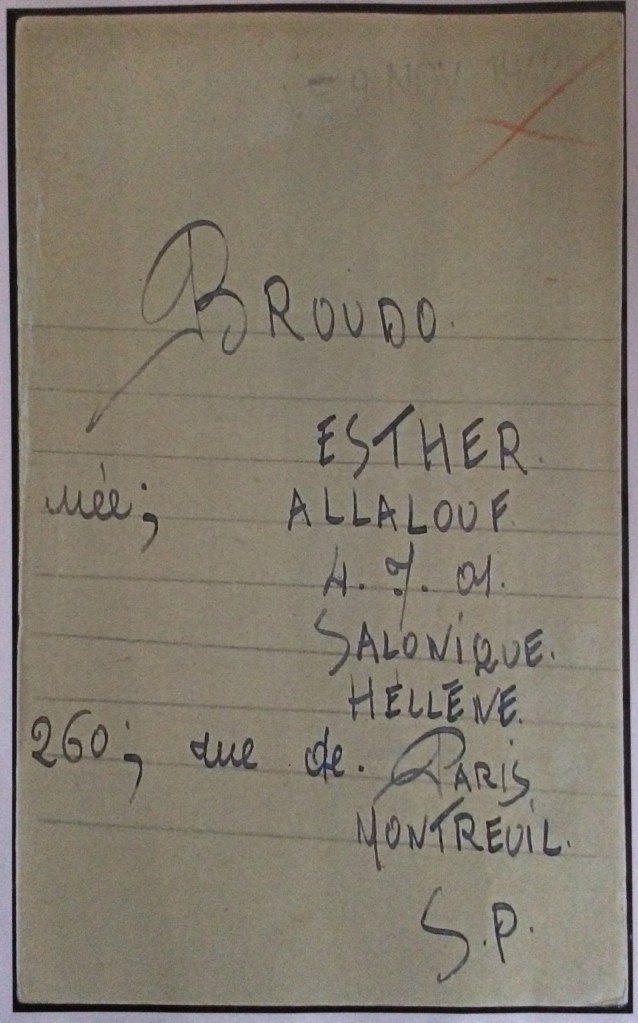 BROUDO.
ESTHER.
née; ALLALOUF
4.7.01.
SALONIQUE.
HELLÈNE.
260; rue de. PARIS
MONTREUIL.
S.P.